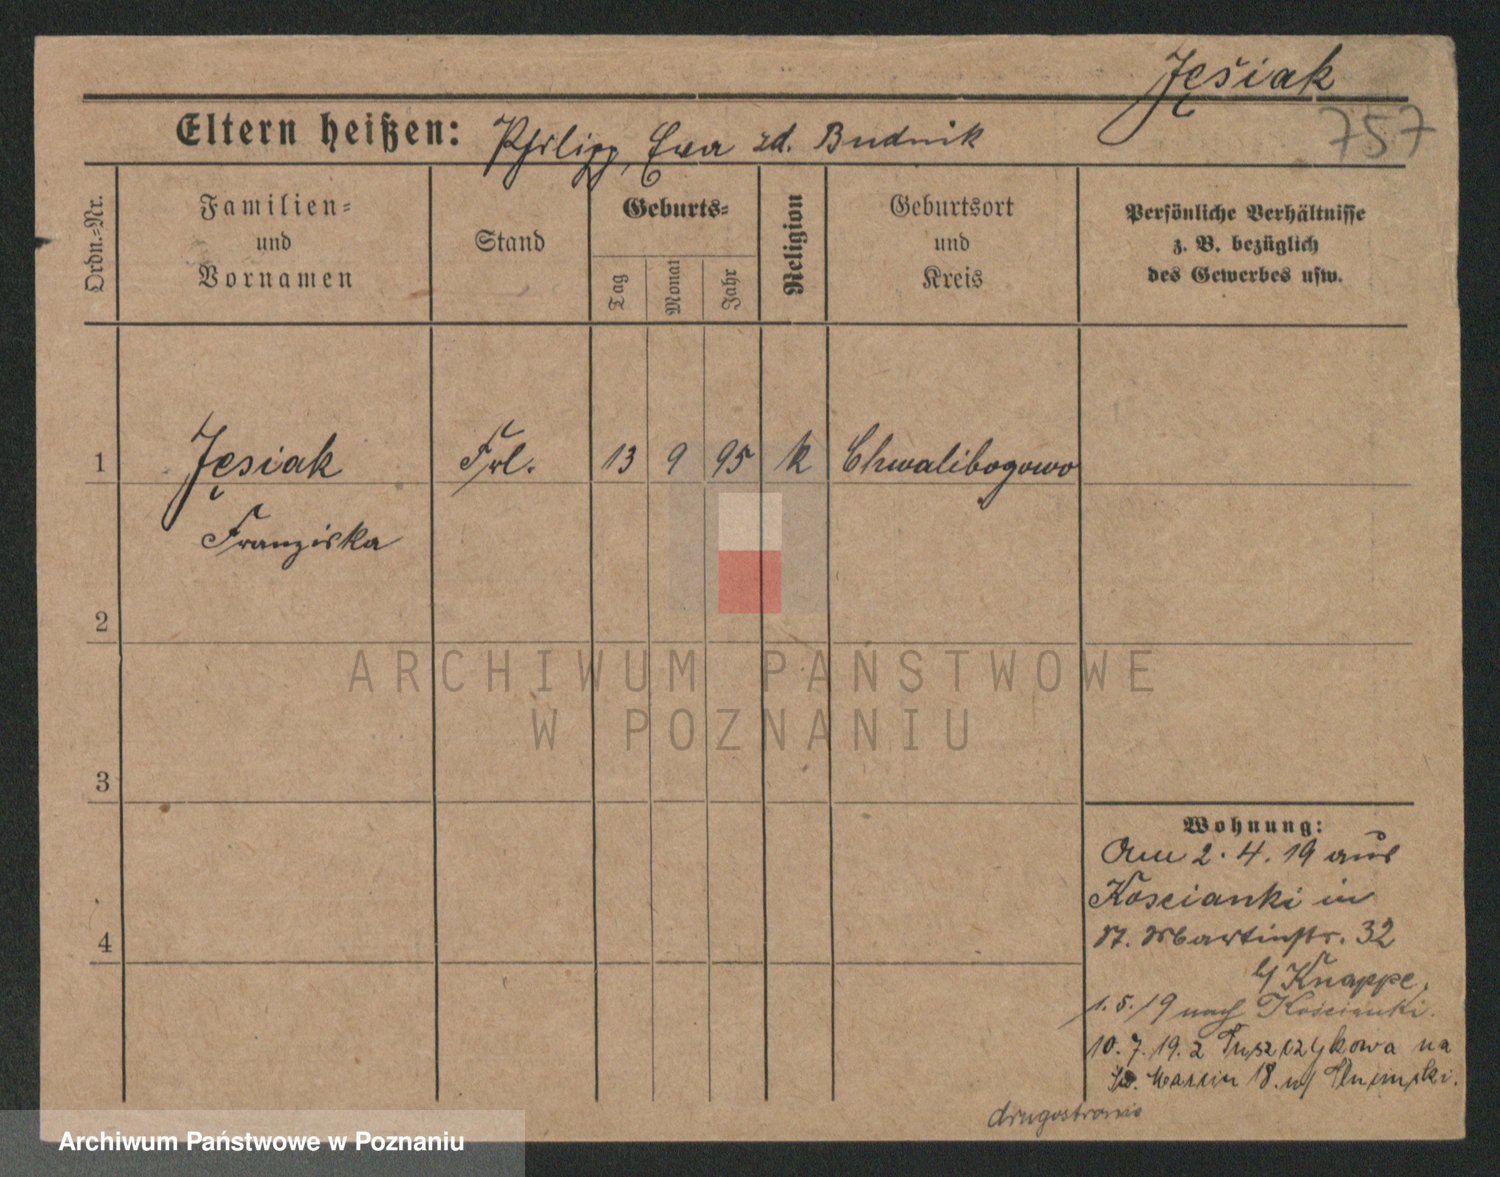 Jęsiak
757
Eltern heißen: Philipp, Ewa zd. Budnik
Ordn.=Nr.
Familien=
und
Vornamen
Stand
Geburts=
Tag
Monat
Jahr
Religion
Geburtsort
und
Kreis
Persönliche Verhältnisse
z. B. bezüglich
des Gewerbes usw.
1 Jęsiak Frl. 13 9 95 k Chwalibogowo
Franziska
2
3
4
Wohnung:
Am 2. 4. 19 aus
Koscianki in
St. Martinstr. 32
b/ Knappe.
1. 5. 19 nach Kościanki.
10. 7. 19. z na
Św. Marcin 18.
drugostronie
ARCHIWUM PAŃSTWOWE
W POZNANIU
Archiwum Państwowe w Poznaniu